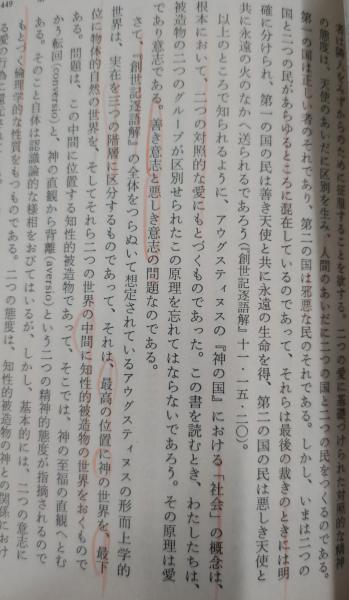 者は隣人
の態度は、天使のあいだに区別を生み、人間のあいだに二つの国と二つの民をつくるのである。
第一の国は正しい者のそれであり、第二の国は邪悪な民のそれである。しかし、いまは二つの
国と二つの民があらゆるところに混在しているのであって、それらは最後の裁きのときには明
確に分けられ、第一の国の民は善き天使と共に永遠の生命を得、第二の国の民は悪しき天使と
共に永遠の火のなかへ送られるであろう(『創世記逐語解』十一・一五・二〇)。
以上のところで知られるように、アウグスティヌスの『神の国』における「社会」の概念は、
根本において、二つの対照的な愛にもとづくものであった。この書を読むとき、わたしたちは、
被造物の二つのグループが区別せられたこの原理を忘れてはならないであろう。その原理は愛
であり意志である。善き意志と悪しき意志の問題なのである。
さて、『創世記逐語解』の全体をつらぬいて想定されているアウグスティヌスの形而上学的
世界は、実在を三つの階層に区分するものであって、それは、最高の位置に神の世界を、最下
位に物体的自然の世界を、そしてそれら二つの世界の中間に知性的被造物の世界をおくもので
ある。問題は、この中間に位置する知性的被造物であって、そこでは、神の至福の直観へとむ
かう転回(conversio)と、神の直観から背離(aversio)という二つの精神的態度が指摘されるので
ある。そのこと自体は認識論的な様相をおびてはいるが、しかし、基本的には、二つの意志に
もとづく倫理学的な性質をもつものである。二つの態度は、知性的被造物の神との関係におけ
る愛の行為に
449